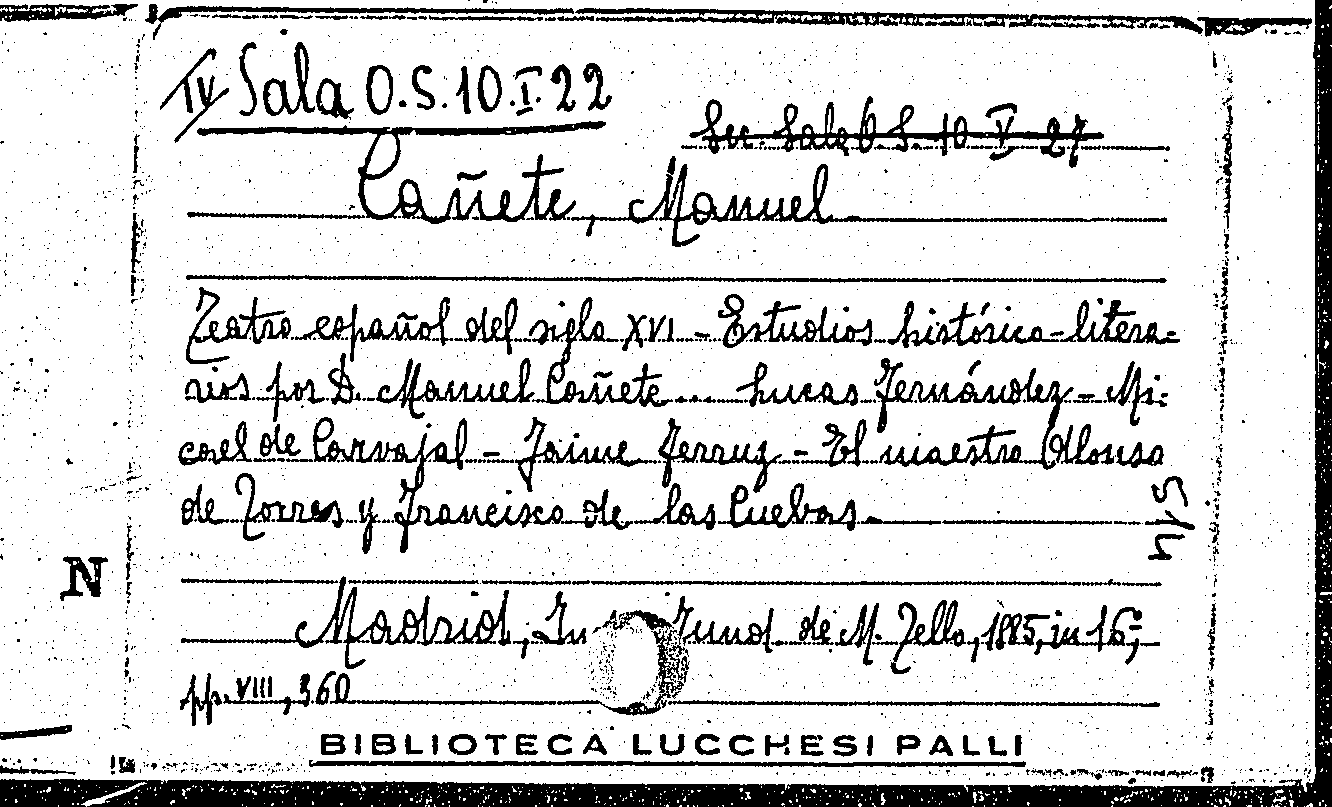 IV Sala O.S.10.I.22
Sec. Sala O.S. 10 V 27
Cañete, Manuel
Teatro español del siglo XVI - Estudios histórico-litera=
rios por D. Manuel Cañete... Lucas Fernández - Mi=
cael de Carvajal - Jaime Ferruz - El maestro Alonso
de Torres y Francisco de las Cuebas.
N
Madrid, Fund. de M. Tello, 1885, in 16º;
pp. VIII, 360
BIBLIOTECA LUCCHESI PALLI